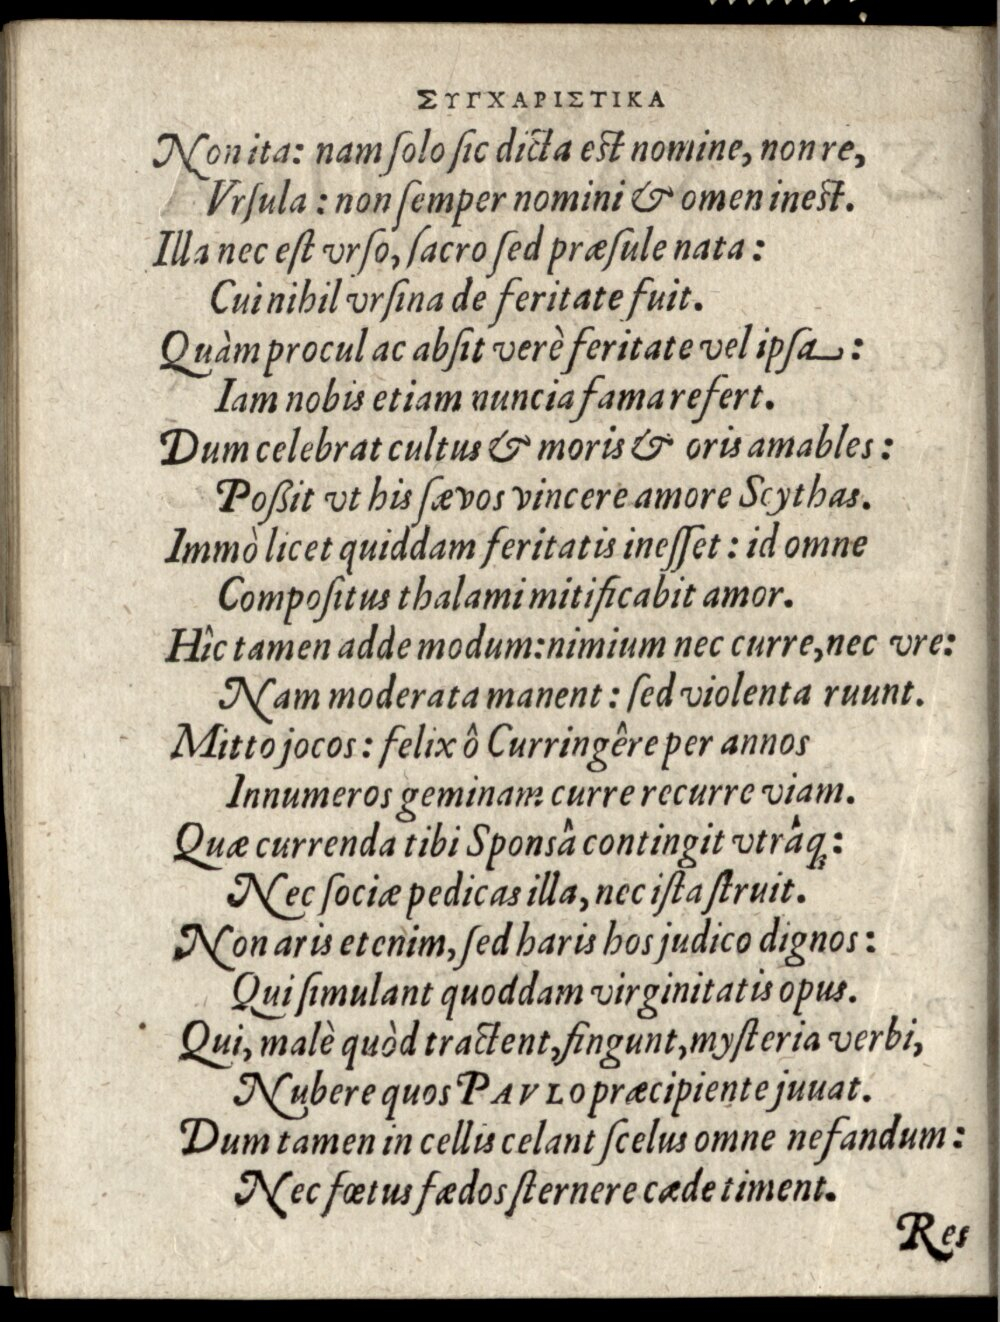 ΣΥΓΧΑΡΙΣΤΙΚΑ
Non ita: nam ſolo ſic dicta est nomine, non re,
Vrſula : non ſemper nomini & omen inest.
Illa nec eſt vrſo, ſacro ſed præſule nata :
Cui nihil vrſina de feritate fuit.
Quàm procul ac abſit verè feritate vel ipſa :
Iam nobis etiam nuncia fama refert.
Dum celebrat cultus & moris & oris amables :
Poßit vt his ſævos vincere amore Scythas.
Immò licet quiddam feritatis ineſſet : id omne
Compoſitus thalami mitificabit amor.
Hîc tamen adde modum: nimium nec curre, nec vre:
Nam moderata manent : ſed violenta ruunt.
Mitto jocos : felix ô Curringêre per annos
Innumeros geminam curre recurre viam.
Quæ currenda tibi Sponsâ contingit vtrâq; :
Nec ſociæ pedicas illa, nec iſta ſtruit.
Non aris etenim, ſed haris hos judico dignos :
Qui ſimulant quoddam virginitatis opus.
Qui, malè quòd tractent, fingunt, myſteria verbi,
Nubere quos PAVLO præcipiente juuat.
Dum tamen in cellis celant ſcelus omne nefandum :
Nec fœtus fædos ſternere cæde timent.
Res